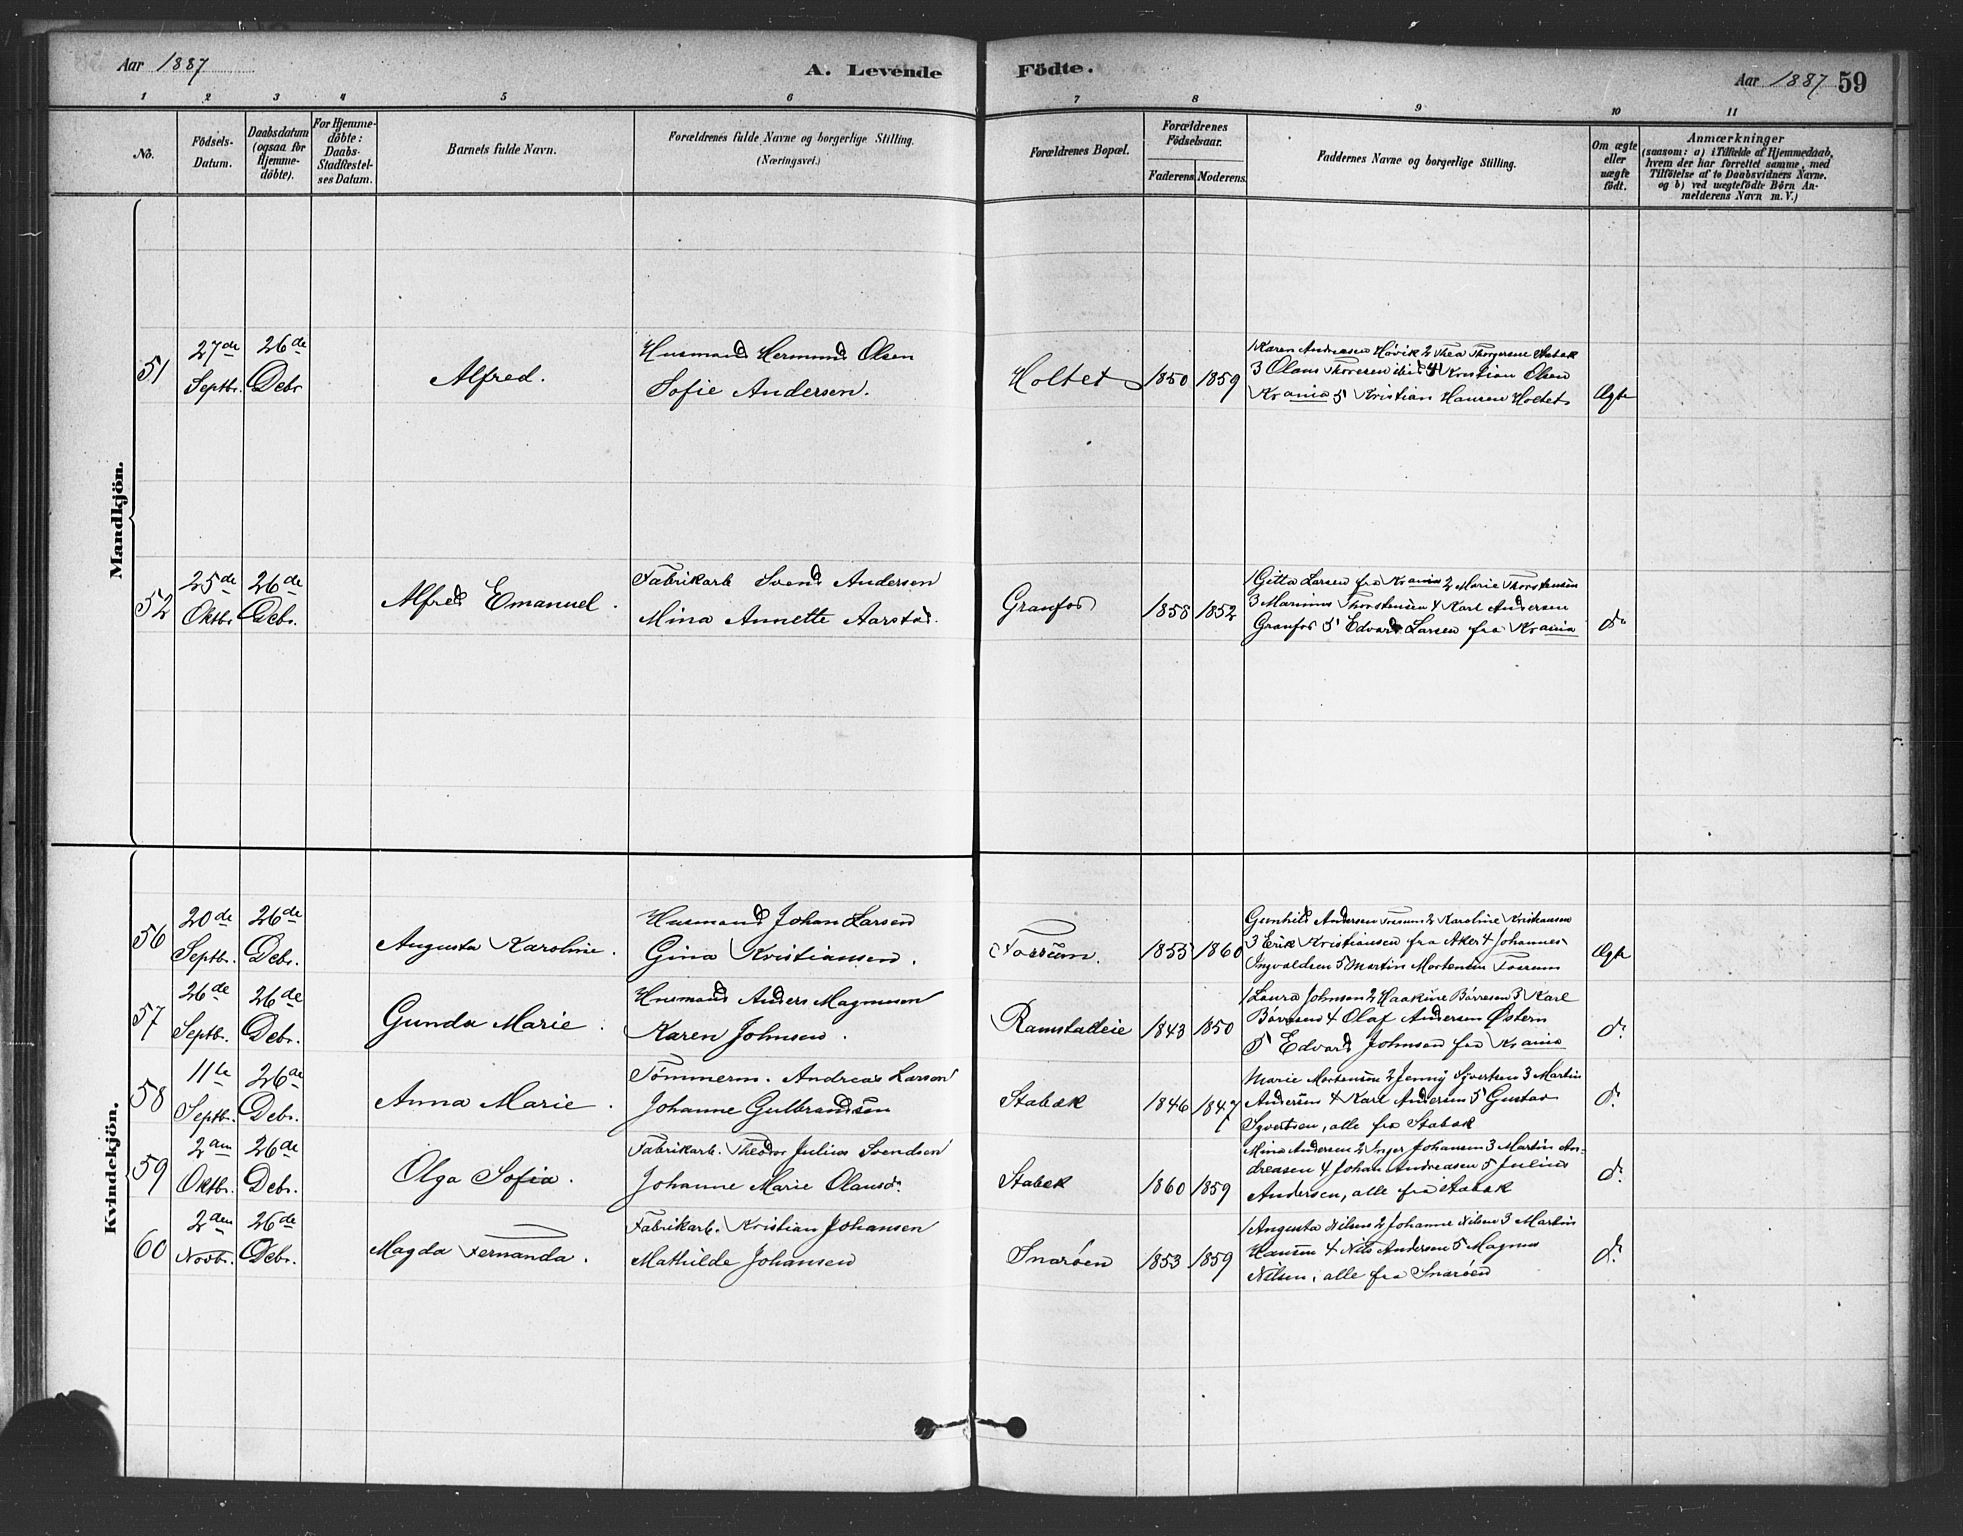 Aar 1887
A. Levende Födte.
Aar 1887 59
1 2 3 4 5 6 7 8 9 10 11
No.
Födsels-
Datum.
Daabsdatum
(ogsaa for
Hjemme-
döbte).
For Hjemme-
döbte:
Daabs-
Stadfæstel-
ses Datum.
Barnets fulde Navn.
Forældrenes fulde Navne og borgerlige Stilling.
(Næringsvei.)
Forældrenes Bopæl.
Forældrenes
Födselsaar.
Faderens Moderens
Faddernes Navne og borgerlige Stilling.
Om ægte
eller
uægte
födt.
Anmærkninger
(saasom: a) i Tilfælde af Hjemmedaab,
hvem der har forrettet samme, med
Tilföielse af to Daabsvidners Navne.
og b) ved uægtefödte Börn An-
melderens Navn m. V.)
Mandkjön.
51
27de
Septbr.
26de
Debr
Alfred.
Husmand Hermund Olsen
Sofie Andersen.
Holtet
1850 1859
1 Karen Andreasen Høvik 2 Thea Thorgersen Stabæk
3 Olaus Thoresen ibid 4 Kristian Olsen
Krania 5 Kristian Hansen Holtet
Ægte
52
25de
Oktbr
26de
Debr.
Alfred Emanuel.
Fabrikarb Svend Andersen
Mina Annette Aarstad.
Granfos
1858 1852
1 Gitta Larsen fra Krania 2 Marie Thorstensen
3 Marinius Thorstensen 4 Karl Andersen
Granfos 5 Edvard Larsen fra Krania
do
Kvindekjön.
56
20de
Septbr.
26de
Debr.
Augusta Karoline.
Husmand Johan Larsen
Gina Kristiansen.
Fossum.
1855 1860
Gunhild Andersen Fossum 2 Karoline Kristiansen
3 Erik Kristiansen fra Aker 4 Johannes
Ingvaldsen 5 Martin Mortensen Fossum
Ægte
57
26de
Septbr.
26de
Debr.
Gunda Marie.
Husmand Anders Magnusen
Karen Johnsen.
Ramstadeie
1843 1850
1 Laura Johnsen 2 Haakine Børresen 3 Karl
Børresen 4 Olaf Andersen Østern
5 Edvard Johnsen fra Krania
do
58
11te
Septbr.
26de
Debr.
Anna Marie.
Tømmerm. Andreas Larsen
Johanne Gulbrandsen
Stabæk
1846 1847
Marie Mortensen 2 Jenny Syvertsen 3 Martin
Andersen 4 Karl Andersen 5 Gustav
Syvertsen, alle fra Stabæk
do
59
2den
Oktbr.
26de
Debr.
Olga Sofia.
Fabrikarb. Theodor Julius Svendsen
Johanne Marie Olausdr.
Stabæk
1860 1859
Mina Andersen 2 Inger Johansen 3 Martin An-
dreasen 4 Johan Andreasen 5 Julius
Andersen, alle fra Stabæk
do
60
2den
Novbr.
26de
Debr.
Magda Fernanda.
Fabrikarb. Kristian Johansen
Mathilde Johansen
Snarøen
1853 1859
1 Augusta Nilsen 2 Johanne Nilsen 3 Martin
Hansen 4 Nils Andersen 5 Magnus
Nilsen, alle fra Snarøen
do